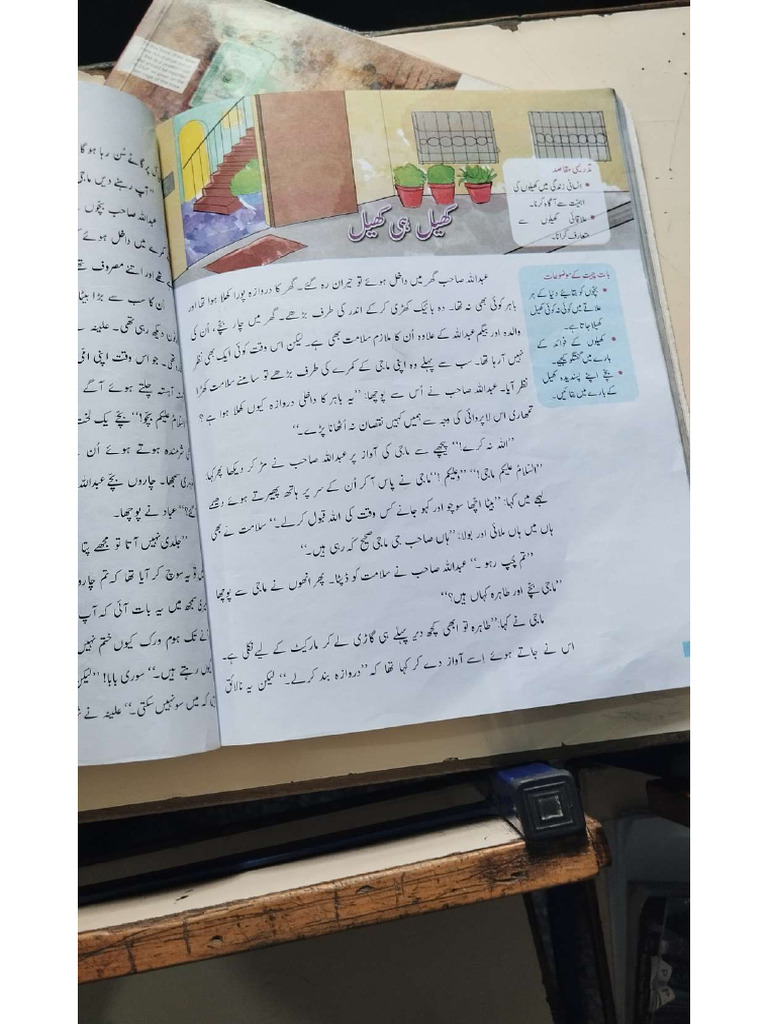 کھیل ہی کھیل
تدریسی مقاصد
انسانی زندگی میں کھیلوں کی
اہمیت سے آگاہ کرنا۔
علاقائی کھیلوں سے
متعارف کرانا۔
بات چیت کے موضوعات
بچوں کو بتائیے دنیا کے ہر
علاقے میں کوئی نہ کوئی کھیل
کھیلا جاتا ہے۔
کھیلوں کے فوائد کے
بارے میں گفتگو کیجیے۔
بچے اپنے پسندیدہ کھیل
کے بارے میں بتائیں۔
عبداللہ صاحب گھر میں داخل ہوئے تو حیران رہ گئے۔ گھر کا دروازہ پورا کھلا ہوا تھا اور
باہر کوئی بھی نہ تھا۔ وہ بائیک کھڑی کرکے اندر کی طرف بڑھے۔ گھر میں چار بچے، اُن کی
والدہ اور بیگم عبداللہ کے علاوہ اُن کا ملازم سلامت بھی ہے۔ لیکن اس وقت کوئی ایک بھی نظر
نہیں آرہا تھا۔ سب سے پہلے وہ اپنی ماجی کے کمرے کی طرف بڑھے تو سامنے سلامت کھڑا
نظر آیا۔ عبداللہ صاحب نے اُس سے پوچھا: ”یہ باہر کا داخلی دروازہ کیوں کھلا ہوا ہے؟
تمھاری اس لاپروائی کی وجہ سے ہمیں کہیں نقصان نہ اُٹھانا پڑے۔“
”اللہ نہ کرے!“ پیچھے سے ماجی کی آواز پر عبداللہ صاحب نے مڑ کر دیکھا پھر کہا:
”السلامُ علیکم ماجی!“ ”وعلیکم!“ ماجی نے پاس آ کر اُن کے سر پر ہاتھ پھیرتے ہوئے دھیمے
لہجے میں کہا: ”بیٹا اچھا سوچو اور کہو جانے کس وقت کی اللہ قبول کرلے۔“ سلامت نے بھی
ہاں میں ہاں ملائی اور بولا: ”ہاں صاحب جی ماجی صحیح کہہ رہی ہیں۔“
”تم چپ رہو۔“ عبداللہ صاحب نے سلامت کو ڈپٹا۔ پھر انھوں نے ماجی سے پوچھا
”ماجی بچے اور طاہرہ کہاں ہیں؟“
ماجی نے کہا: ”طاہرہ تو ابھی کچھ دیر پہلے ہی گاڑی لے کر مارکیٹ کے لیے نکلی ہے۔
اس نے جاتے ہوئے اِسے آواز دے کر کہا تھا کہ ”دروازہ بند کرلے۔“ لیکن یہ نالائق
پر گانے سُن رہا ہو گا
”آپ رہنے دیں ماجی
عبداللہ صاحب بچوں
کمرے میں داخل ہوئے
تھے اور اتنے مصروف تھے
اُن کا سب سے بڑا بیٹا
دیکھ رہی تھی۔ علینہ
تھی۔ جو اس وقت اپنی
آہستہ چلتے ہوئے آگے
السلامُ علیکم بچو!“ بچے یک لخت
شرمندہ ہوتے ہوئے اُن
سمجھا۔ چاروں بچے عبداللہ
عباد نے پوچھا۔
”جلدی نہیں آتا تو مجھے پتا
یہ سوچ کر آیا تھا کہ تم چارو
سمجھ میں یہ بات آئی کہ آپ
نے تک ہوم ورک کیوں ختم نہیں
رہتے ہیں۔“ سوری بابا! ”لیکن
کہ میں سو نہیں سکتی۔“ علینہ نے